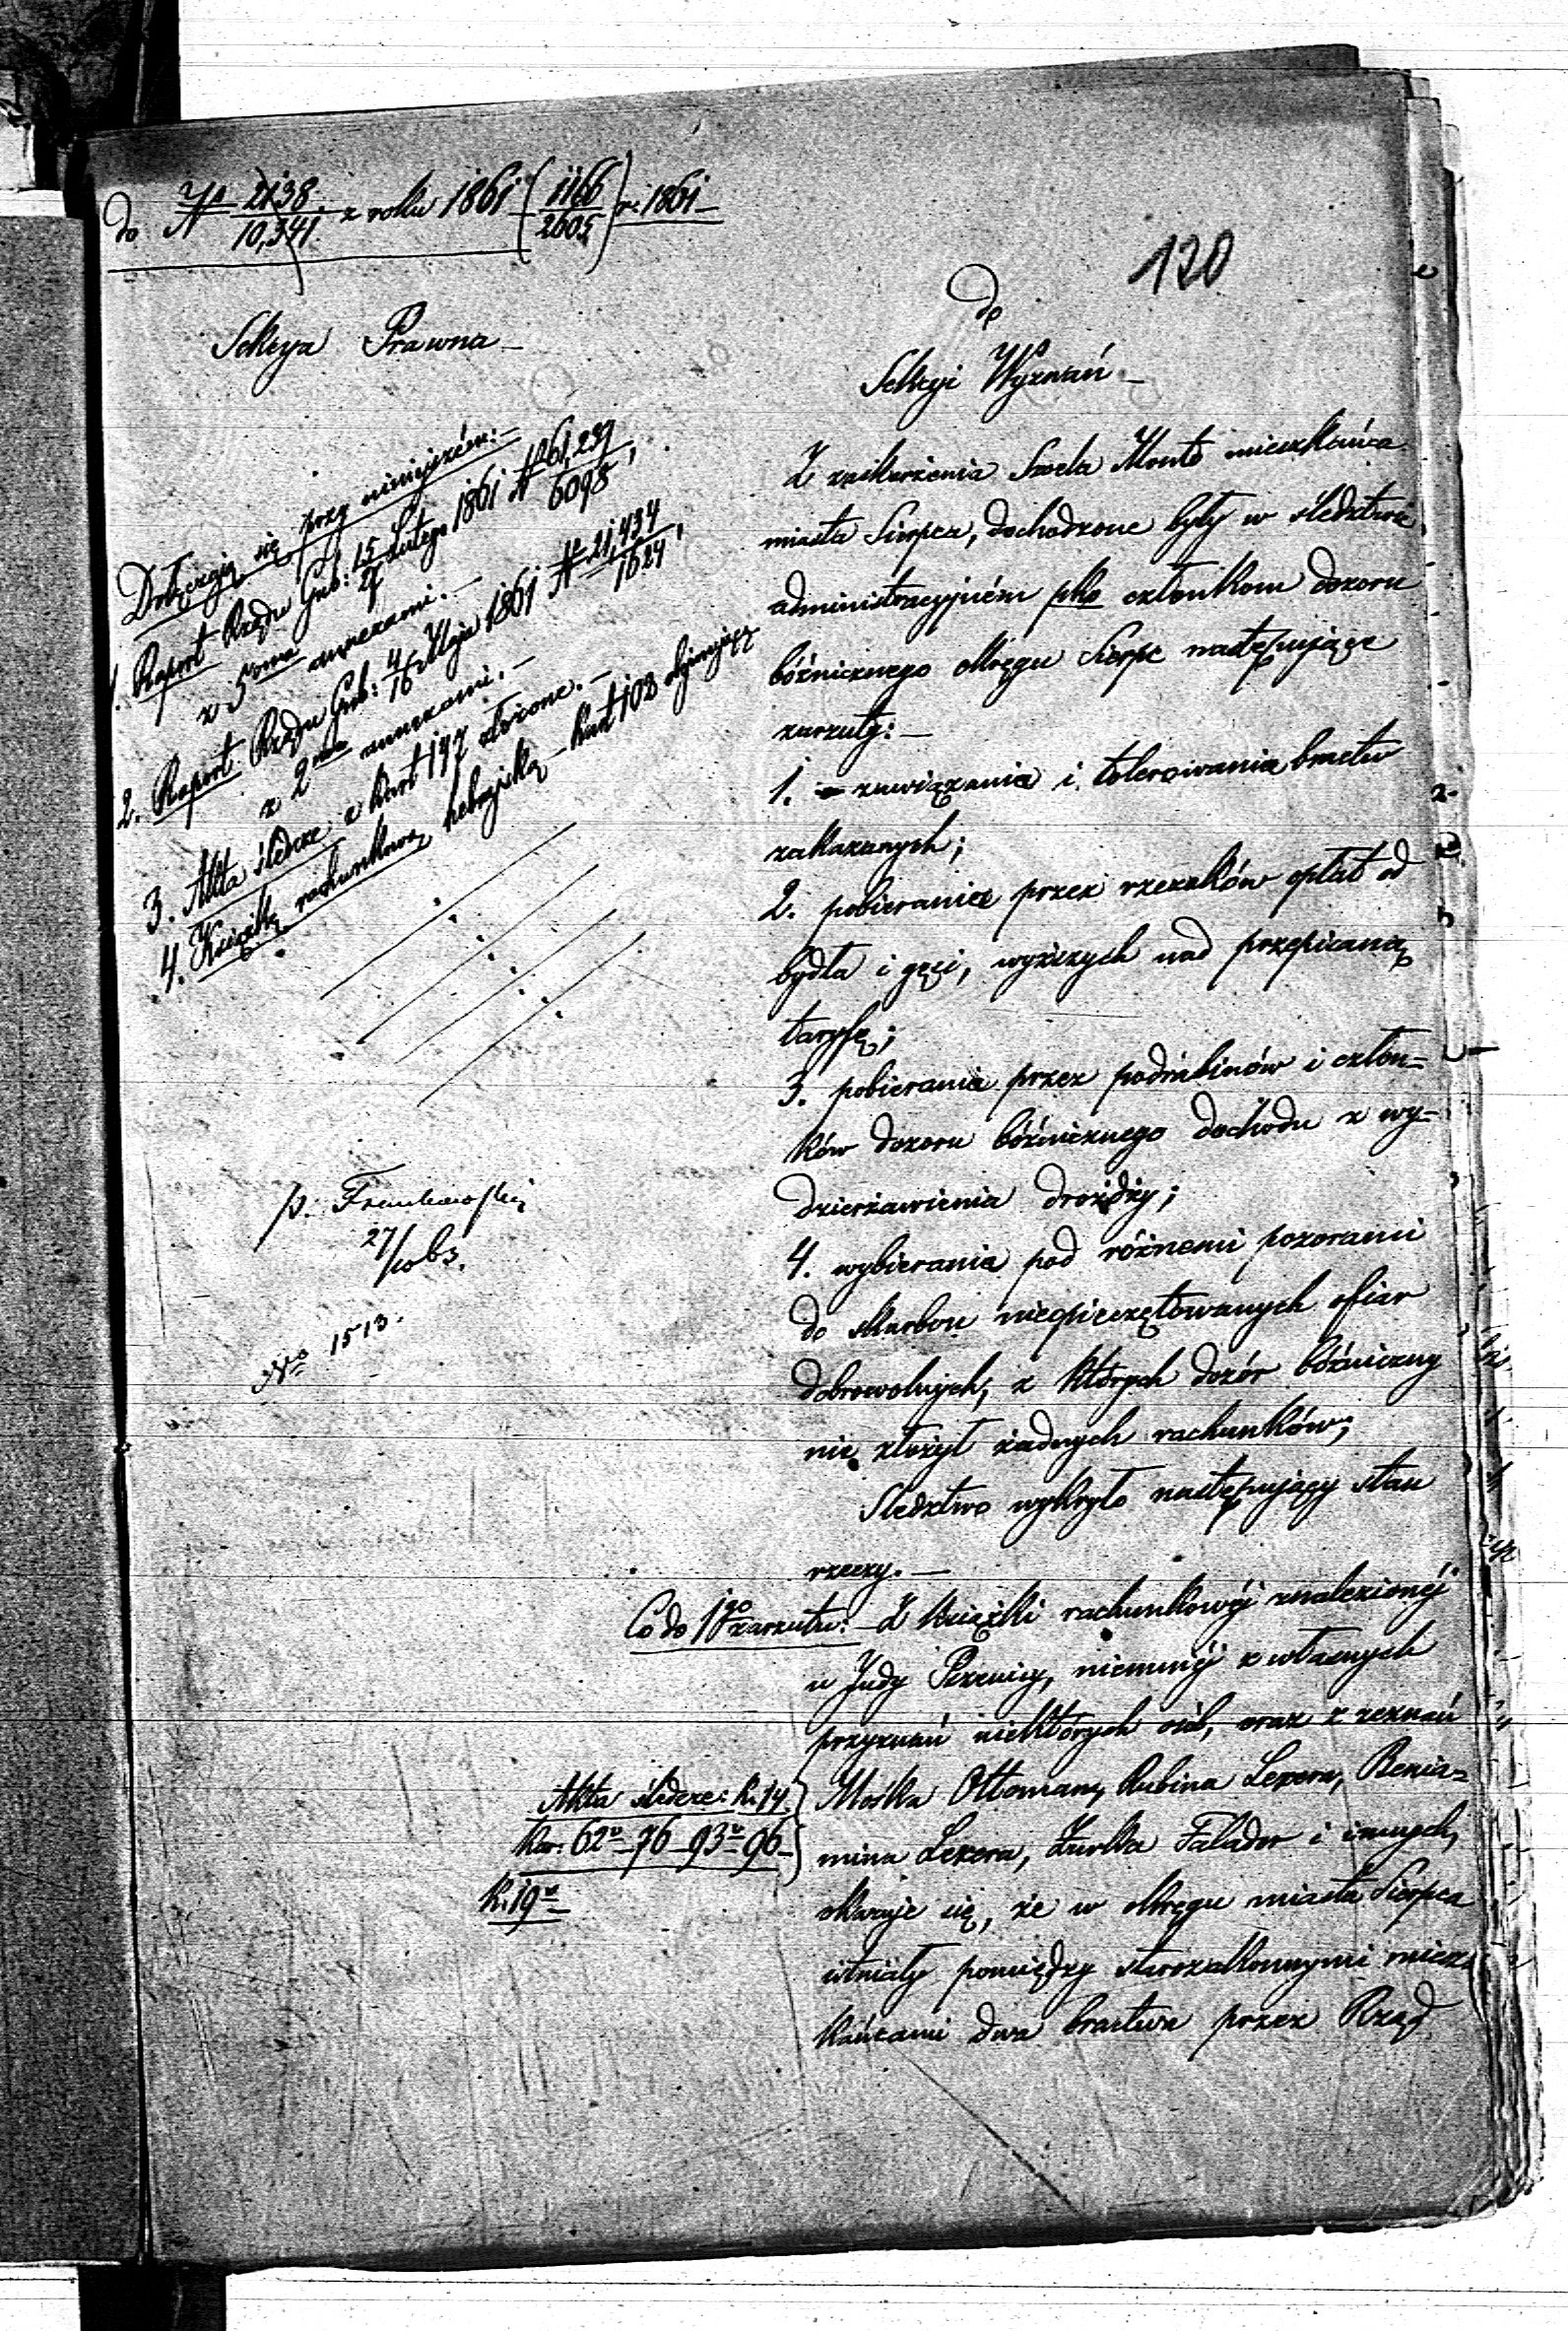 do № 2138/10,341 z roku 1861 (1166/2605) r. 1861
120
Sekcya Prawna
do
Sekcyi Wyznań
Dołączają się przy niniejszém:
1. Raport Rządu Gub: 15/27 Lutego 1861 № 61,239/6098,
z 5ma annexami.
2. Raport Rządu Gub: 4/16 Maja 1861 № 21,434/1624,
z 2ma annexami.
3. Akta śledcze z kart 147 złożone.
4. Książkę rachunkową hebrajską kart 103 obejmującą
p.
27/10 63.
No 1513.
Z zaskarżenia Szoela Monto mieszkańca
miasta Sierpca, dochodzone były w śledztwie
administracyjném pko członkom dozoru
bóżnicznego okręgu Sierpc następujące
zarzuty:
1. zawiązania i tolerowania bractw
zakazanych;
2. pobieranie przez rzezaków opłat od
bydła i gęsi, wyższych nad przepisaną
taryfę;
3. pobierania przez podrabinów i człon=
ków dozoru bóżnicznego dochodu z wy=
dzierżawienia drożdży;
4. wybierania pod różnemi pozorami
do skarbon nieopieczętowanych ofiar
dobrowolnych, z których dozór bóżniczny
nie złożył żadnych rachunków;
Śledztwo wykryło następujący stan
rzeczy.
Co do 1go zarzutu: Z książki rachunkowéj znalezionéj
u Judy Pszenicy, niemniéj z własnych
przyznań niektórych osób, oraz z zeznań
Akta śledcze: k. 14.
Mośka Ottoman, Rubina Lezera, Benia=
kar. 62v 76 93v 96
mina Lezera, Zurka Falador i innych,
k. 19v
okazuje się, że w okręgu miasta Sierpca
istniały pomiędzy starozakonnymi miesz=
kańcami dwa bractwa przez Rząd